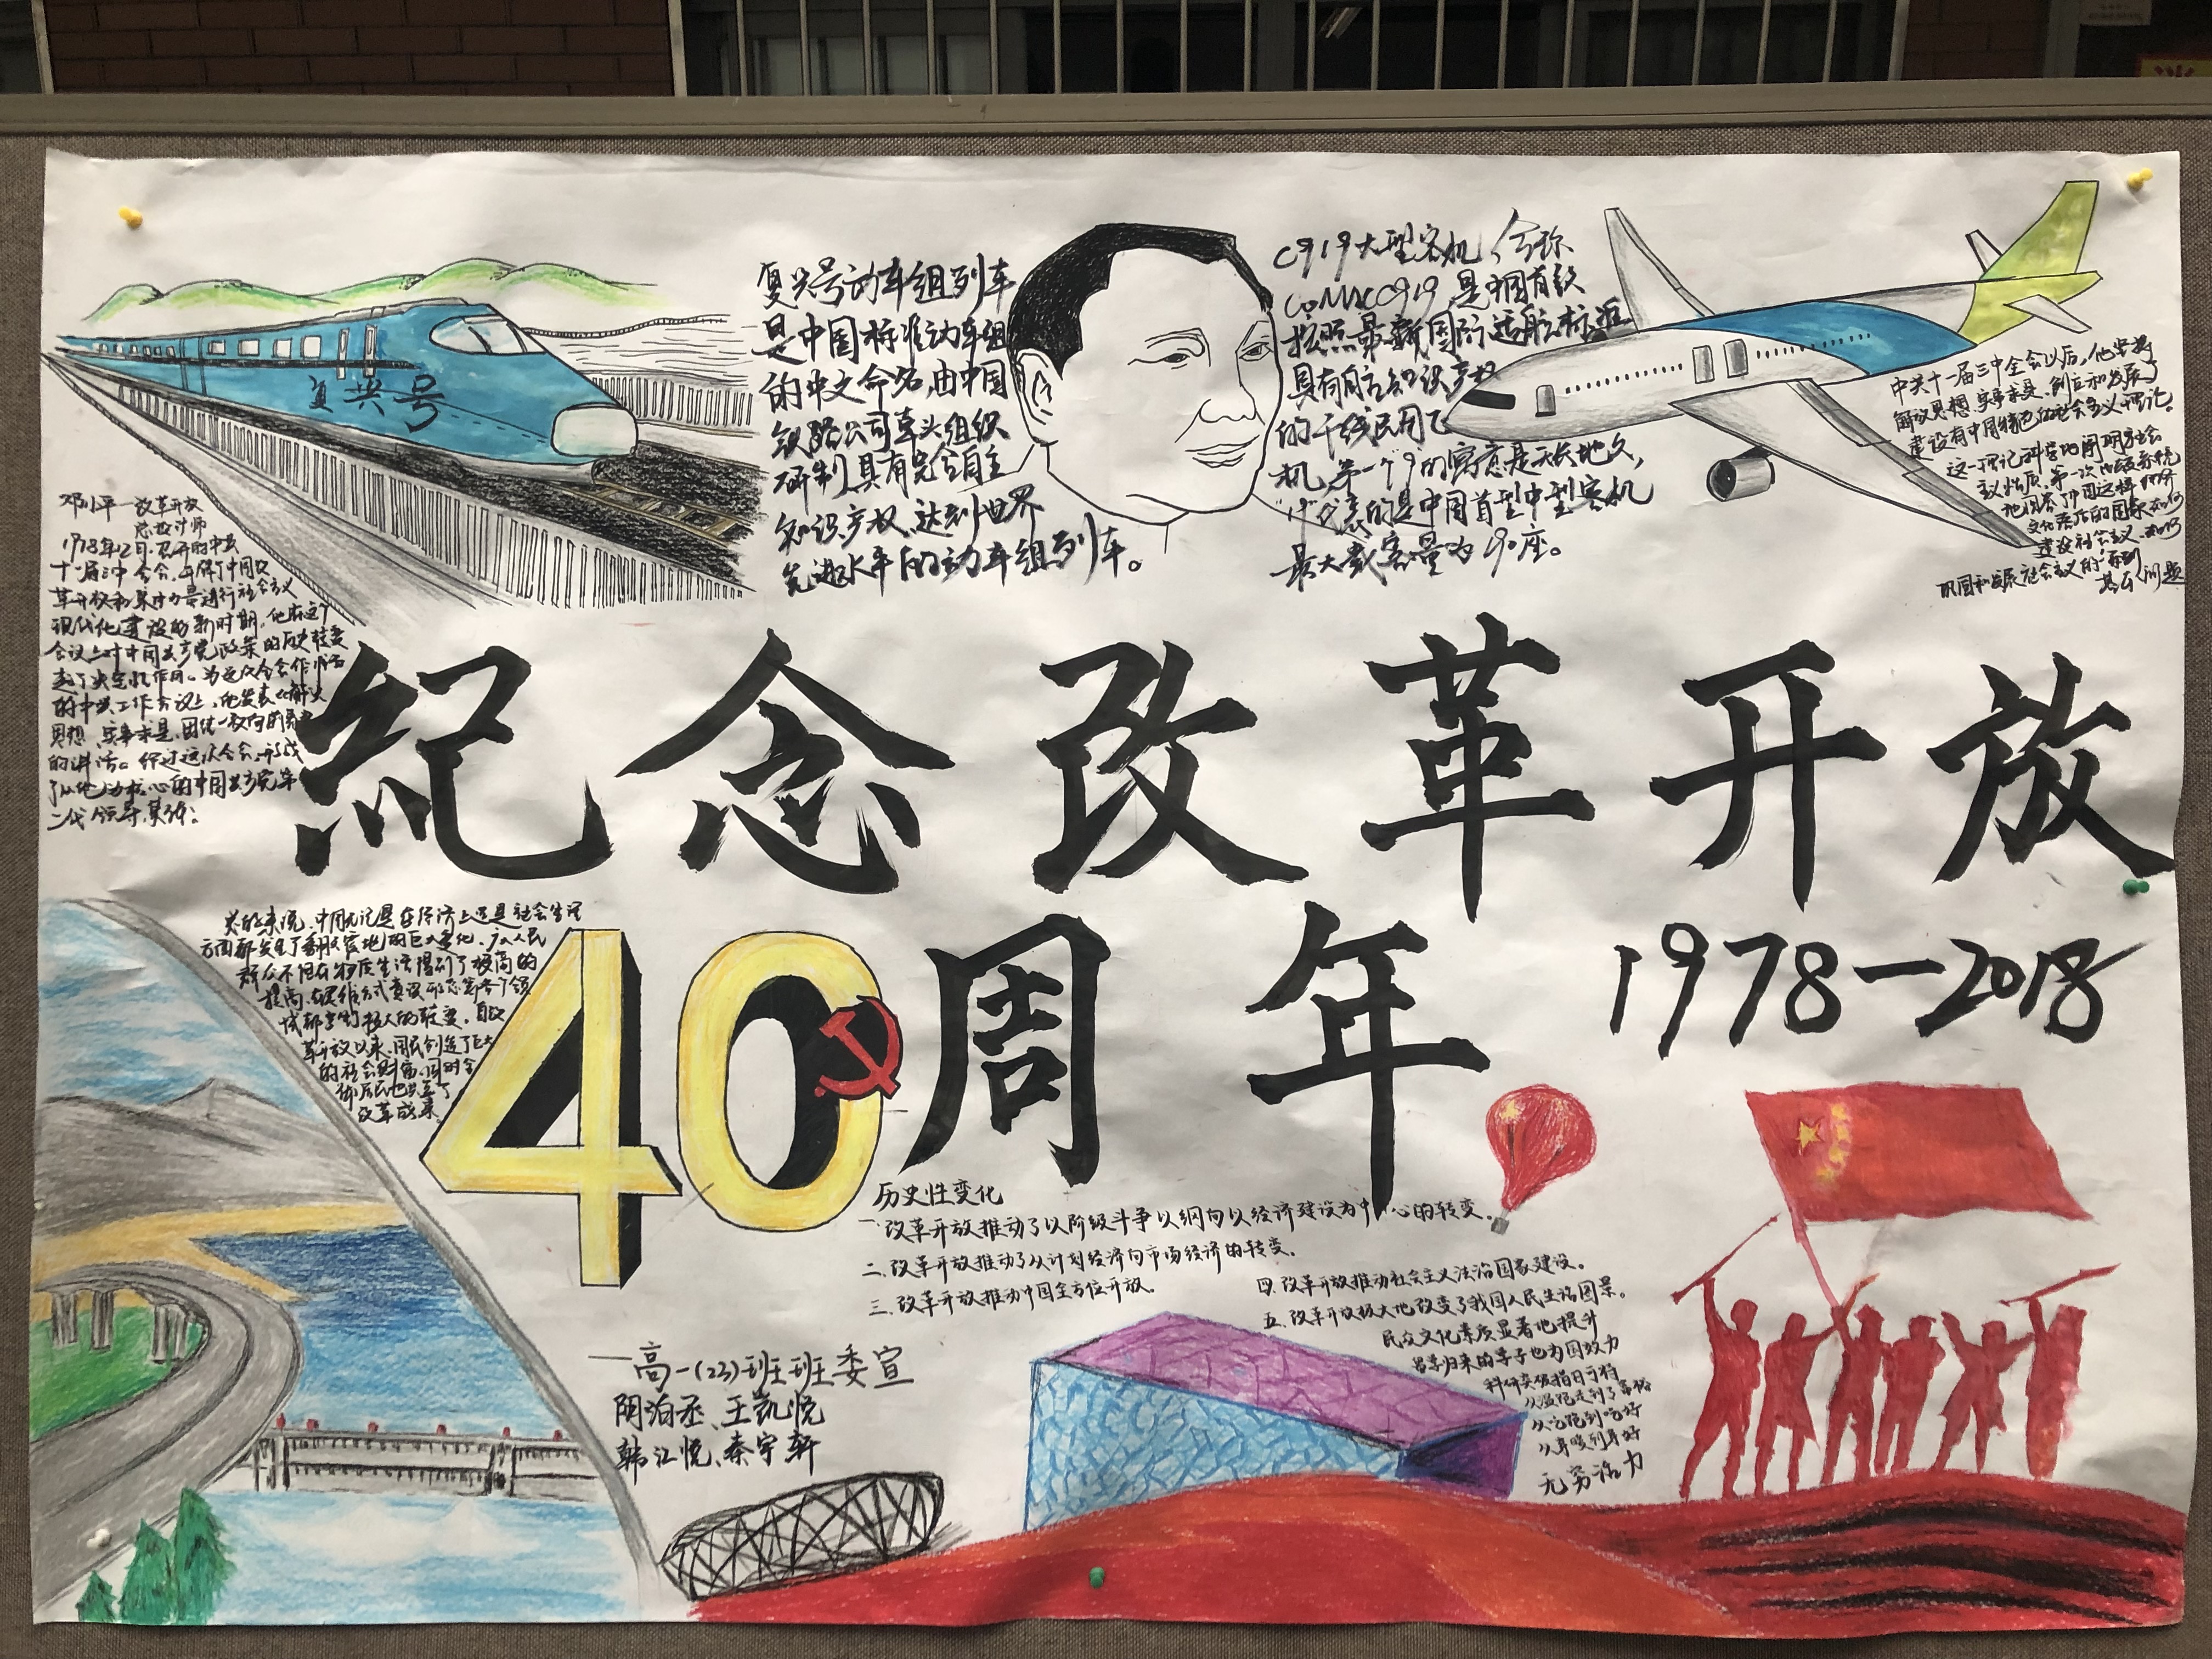 复兴号
复兴号动车组列车
是中国标准动车组
的中文命名,由中国
铁路公司牵头组织
研制、具有完全自主
知识产权、达到世界
先进水平的动车组列车。
C919大型客机,全称
COMAC C919,是中国首款
按照最新国际适航标准
具有自主知识产权
的干线民用飞
机,第一个"9"的寓意是天长地久,
"19"代表的是中国首型中型客机
最大载客量为190座。
中共十一届三中全会以后,他坚持
解放思想、实事求是,创立和发展了
建设有中国特色的社会主义理论。
这一理论科学地阐明社会
主义性质,第一次比较系统
地回答了中国这样的经济
文化落后的国家如何
建设社会主义、如何
巩固和发展社会主义的一系列
基本问题
邓小平——改革开放
总设计师
1978年12月,召开的中共
十一届三中全会,开辟了中国改
革开放和集中力量进行社会主义
现代化建设的新时期。他在这个
会议上对中国共产党政策的历史转变
起了决定性作用。为这次全会作准备
的中共工作会议上,他发表《解放
思想、实事求是、团结一致向前看》
的讲话。经过这次全会,形成
了以他为核心的中国共产党第
二代领导集体。
紀念改革开放
40周年
1978—2018
总的来说,中国无论是在经济上还是社会生活
方面都发生了翻天覆地的巨大变化,广大人民
群众不但在物质生活得到了极高的
提高,在思维方式意识形态等各个领
域都享有极大的转变。自改
革开放以来,国民创造了巨大
的社会财富,同时全
体居民也共享了
改革成果。
历史性变化
一.改革开放推动了以阶级斗争以纲向以经济建设为中心的转变.
二.改革开放推动了从计划经济向市场经济的转变.
三.改革开放推动中国全方位开放.
四.改革开放推动社会主义法治国家建设。
五.改革开放极大地改变了我国人民生活图景。
民众文化素质显著地提升
留学归来的学子也为国效力
科研突破指日可待
从温饱走到了富裕
从吃饱到吃好
从穿暖到穿好
无穷活力
—高一(23)班班委宣
阴泊丞、王凯悦
韩江悦、秦宇轩